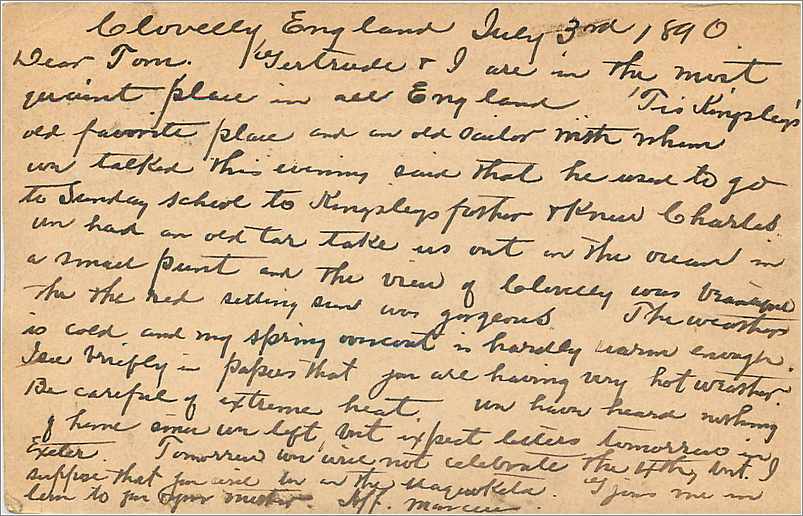 Clovelly England July 3rd 1890
Dear Tom. Gertrude & I are in the most
quaint place in all England 'Tis Kingsley's
old favorite place and an old sailor with whom
we talked this evening said that he used to go
to Sunday school to Kingsleys father & knew Charles.
We had an old tar take us out on the ocean in
a small punt and the view of Clovelly was beautiful
the the red setting sun was gorgeous The weather
is cold and my spring overcoat is hardly warm enough.
I see briefly in papers that you are having very hot weather.
Be careful of extreme heat. We have heard nothing
of home since we left, but expect letters tomorrow in
Exeter. Tomorrow we will not celebrate the 4th, but I
suppose that you will be on the Maquoketa. G joins me in
love to you & your mother. Aff.